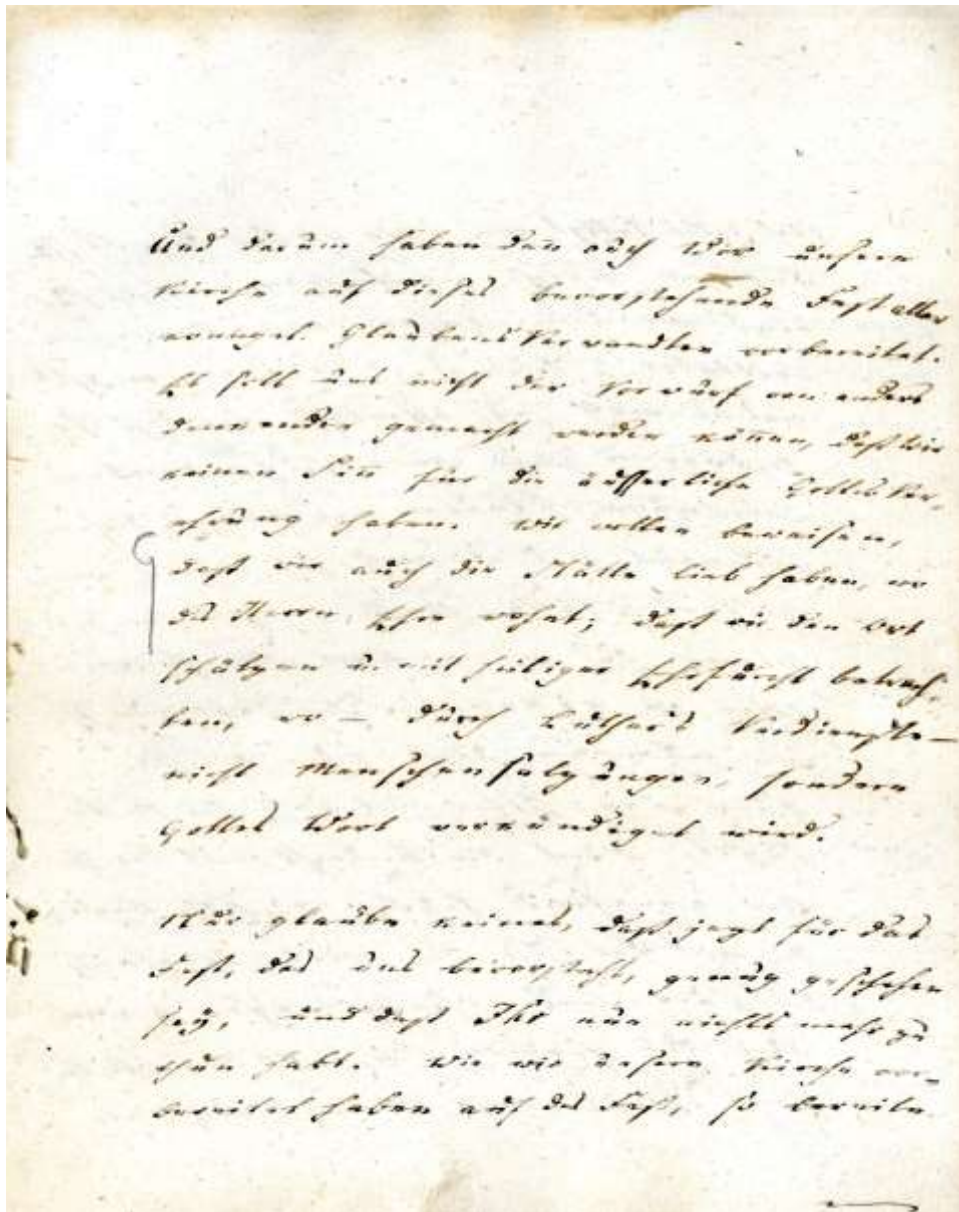 Und darum haben den auch Wir unsere
Kirche auf dieses bevorstehende Fest aller
evangel. Glaubens Verwandten vorbereitet.
Es soll uns nicht der Vorwurf von anders
denkenden gemacht werden können, daß wir
keinen Sinn für die äusserliche Gottes Ver-
ehrung haben. Wir wollen beweisen,
daß wir auch die Stätte lieb haben, wo
des Herrn Ehre wohnt; daß wir den Ort
schätzen u. mit heiliger Ehrfurcht betrach-
ten, wo – durch Luther's Verdienste –
nicht Menschensatzungen, sondern
Gottes Wort verkündiget wird.
Nur glaube keines, daß jezt für das
Fest, das uns bevorsteht, genug geschehen
sey, und daß Ihr nun nichts mehr zu
thun habt. Wie wir unsere Kirche vor-
bereitet haben auf das Fest, so bereite